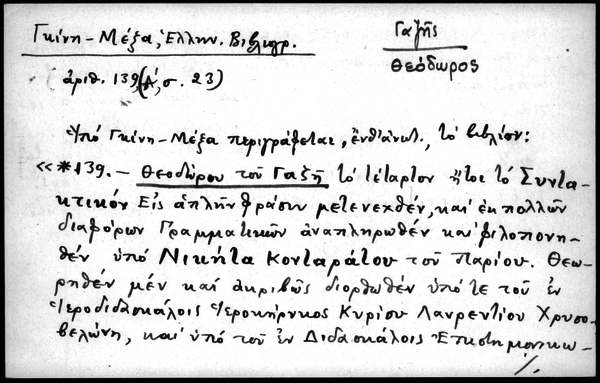 Γκίνη-Μέξα, Ἑλλην. Βιβλιογρ.
Γαζῆς
Θεόδωρος
ἀριθ. 139, (Α΄, σ. 23)
Ὑπό Γκίνη-Μέξα περιγράφεται, ἔνθ' ἀνωτ., τό βιβλίον:
«*139.- Θεοδώρου τοῦ Γαζῆ τό τέταρτον ἤτοι τό Συντα-
κτικόν Εἰς ἁπλῆν φράσιν μετενεχθέν, καί ἐκ πολλῶν
διαφόρων Γραμματικῶν ἀναπληρωθέν καί φιλοπονη-
θέν ὑπό Νικήτα Κονταράτου τοῦ Παρίου. Θεω-
ρηθέν μέν καί ἀκριβῶς διορθωθέν ὑπό τε τοῦ ἐν
Ἱεροδιδασκάλοις Ἱεροκήρυκος Κυρίου Λαυρεντίου Χρυσο-
βελώνη, καί ὑπό τοῦ ἐν Διδασκάλοις Ἐπιστημονικω-
./.